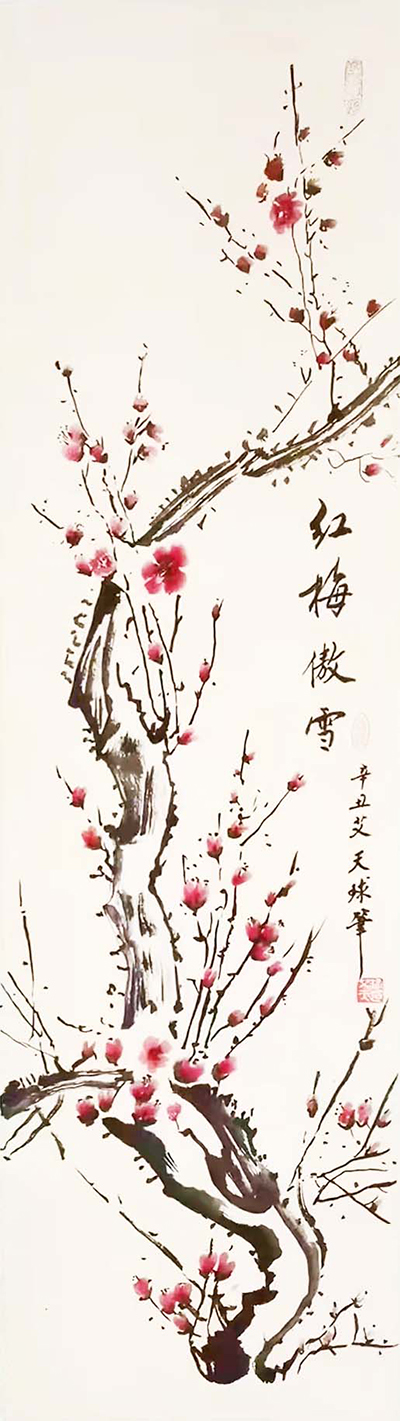 红梅傲雪
辛丑艾天球笔